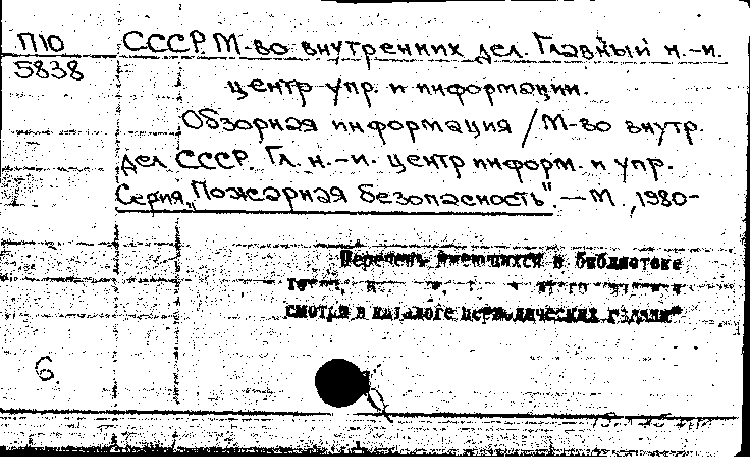 П10 СССР. М-во внутренних дел. Главный н.-и.
5838
центр упр. и информации.
Обзорная информация / М-во внутр.
дел СССР. Гл. н.-и. центр информ. и упр.
Серия „Пожарная безопасность". — М., 1980-
Перечень имеющихся в библиотеке
смотри в каталоге периодических изданий
6